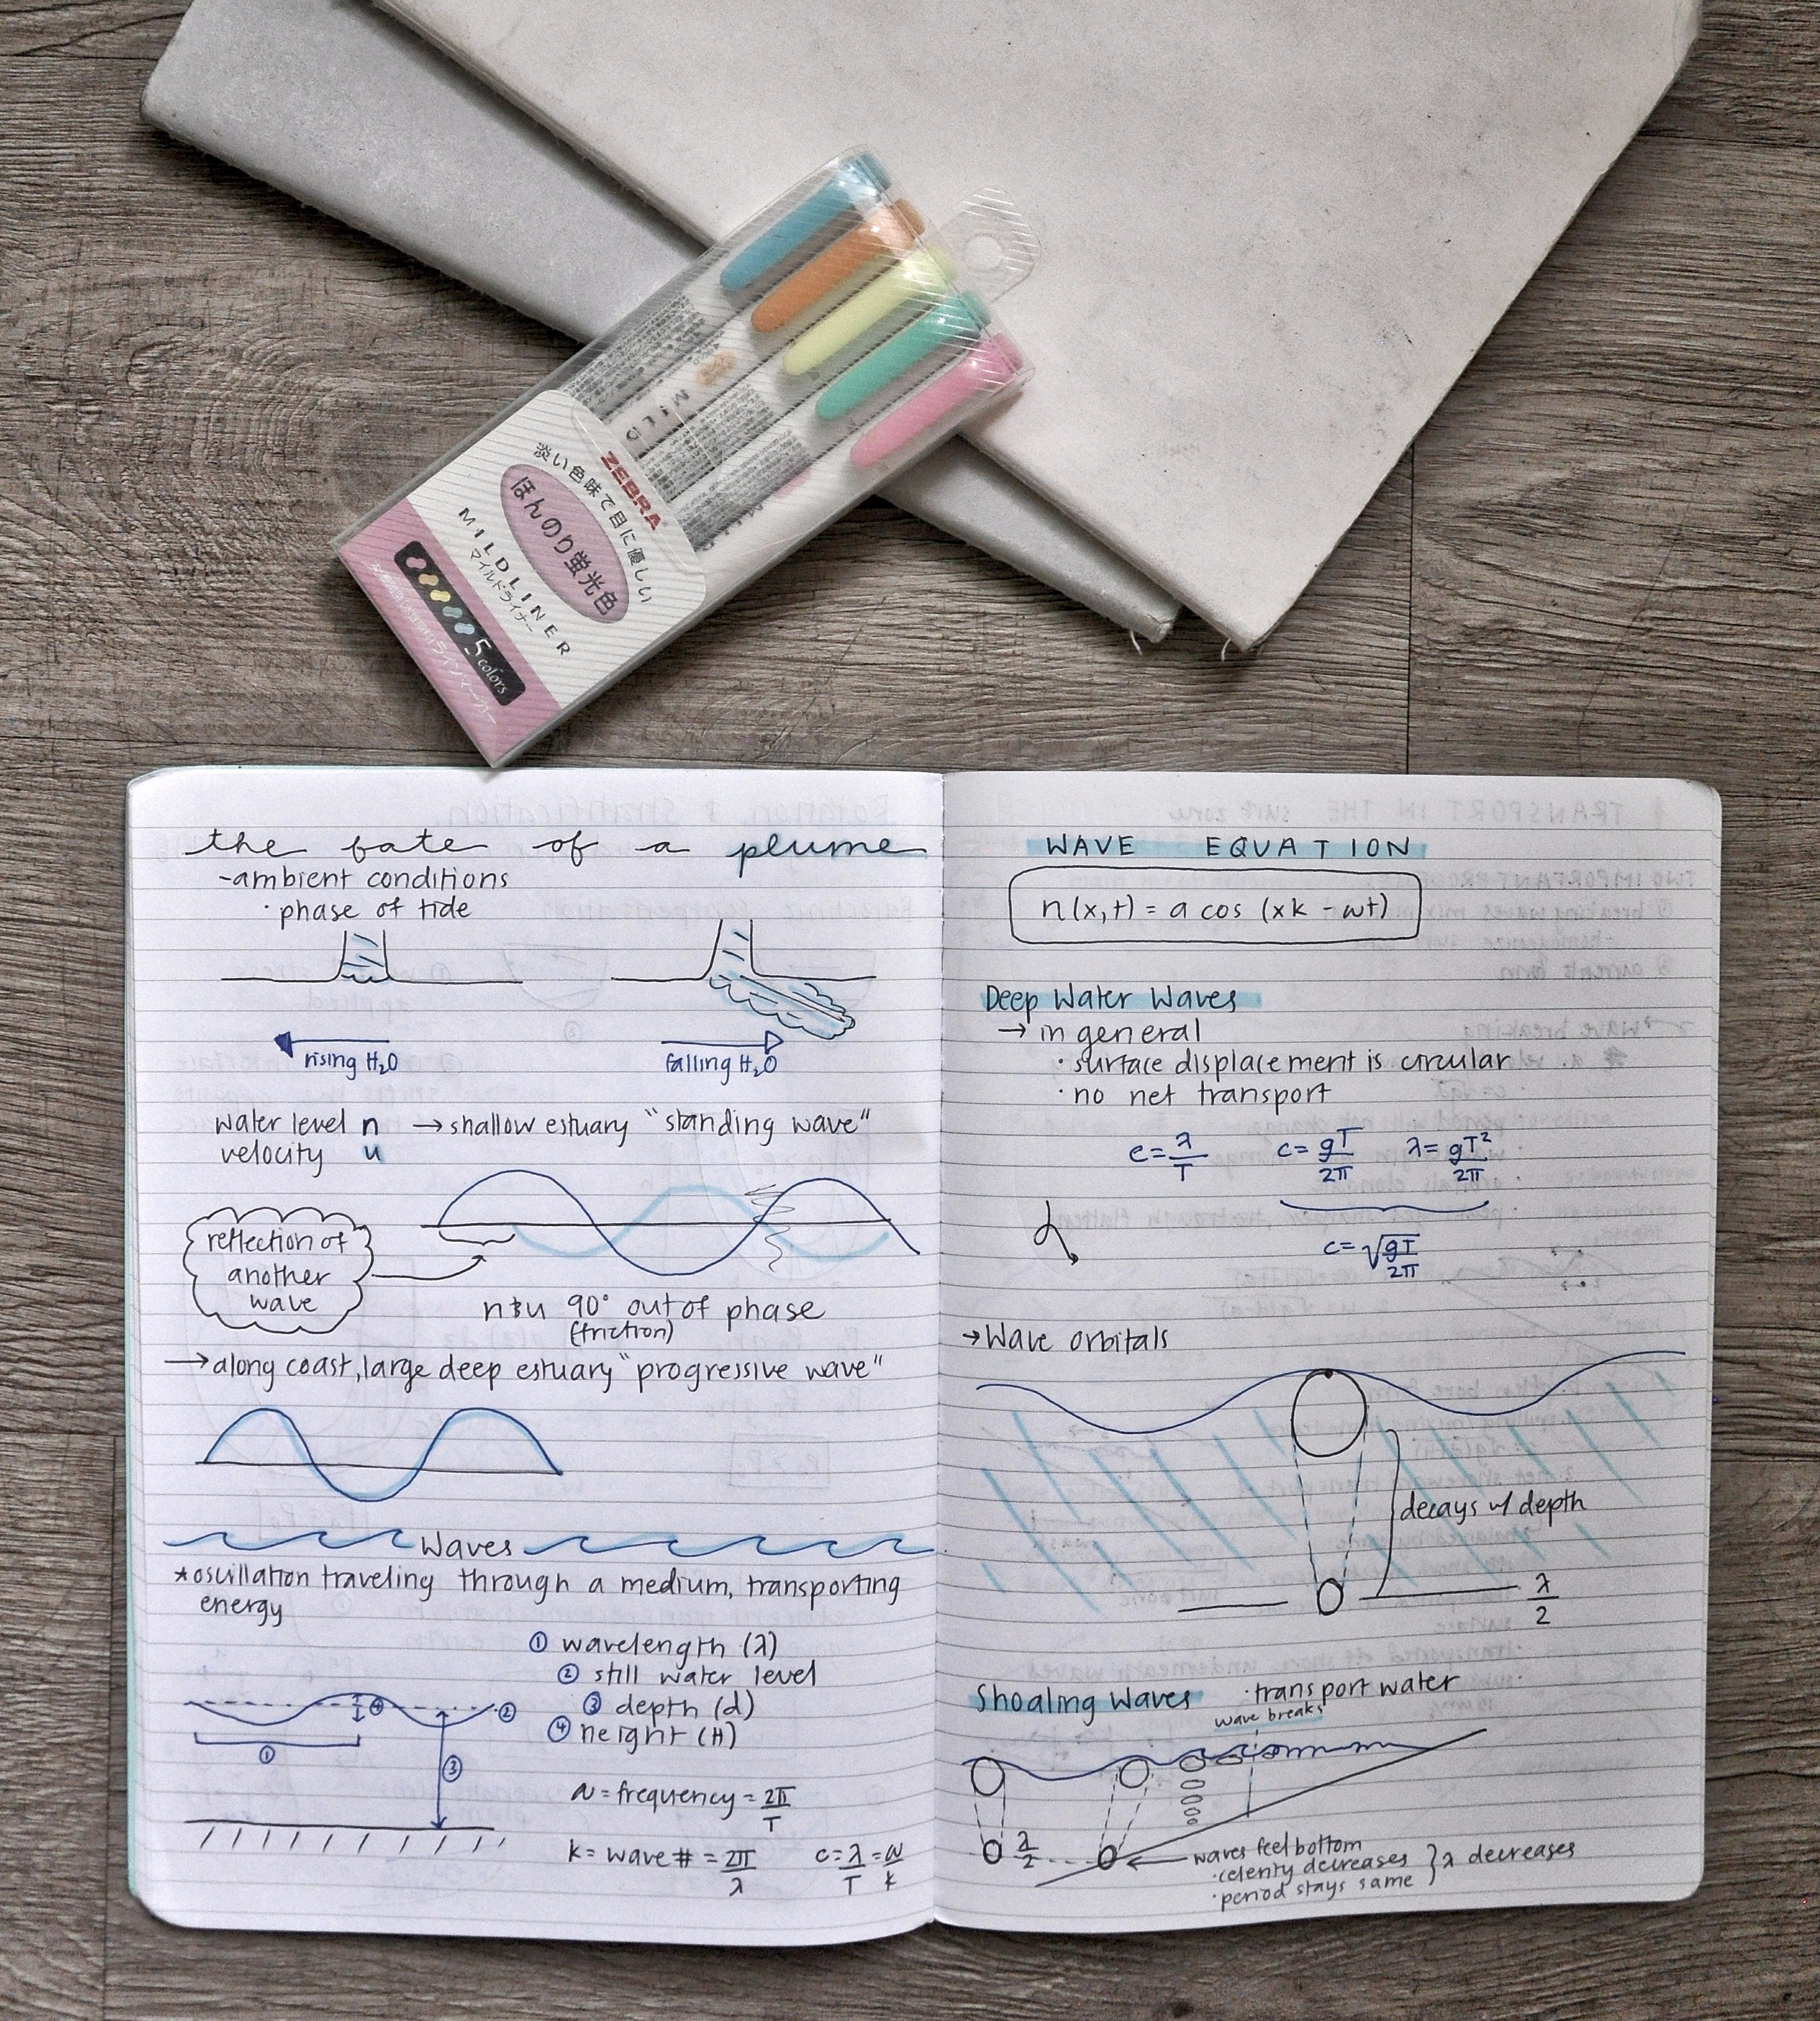 ZEBRA
淡い色味で目に優しい
ほんのり蛍光色
MILDLINER
マイルドライナー
5 colors
MILD
the fate of a plume
-ambient conditions
· phase of tide
rising H₂O
falling H₂O
water level n → shallow estuary "standing wave"
velocity u
reflection of
another
wave
n & u 90° out of phase
(friction)
→ along coast, large deep estuary "progressive wave"
Waves
* oscillation traveling through a medium, transporting
energy
① wavelength (λ)
② still water level
③ depth (d)
④ height (H)
④
②
①
③
ω = frequency = 2π/T
k = wave # = 2π/λ c = λ/T = ω/k
WAVE EQUATION
n(x,t) = a cos (xk - ωt)
Deep Water Waves
→ in general
· surface displacement is circular
· no net transport
c = λ/T c = gT/2π λ = gT²/2π
c = √gT/2π
→ Wave orbitals
decays w/ depth
λ/2
Shoaling Waves · transport water
wave breaks
λ/2
waves feel bottom
· celerity decreases } λ decreases
· period stays same